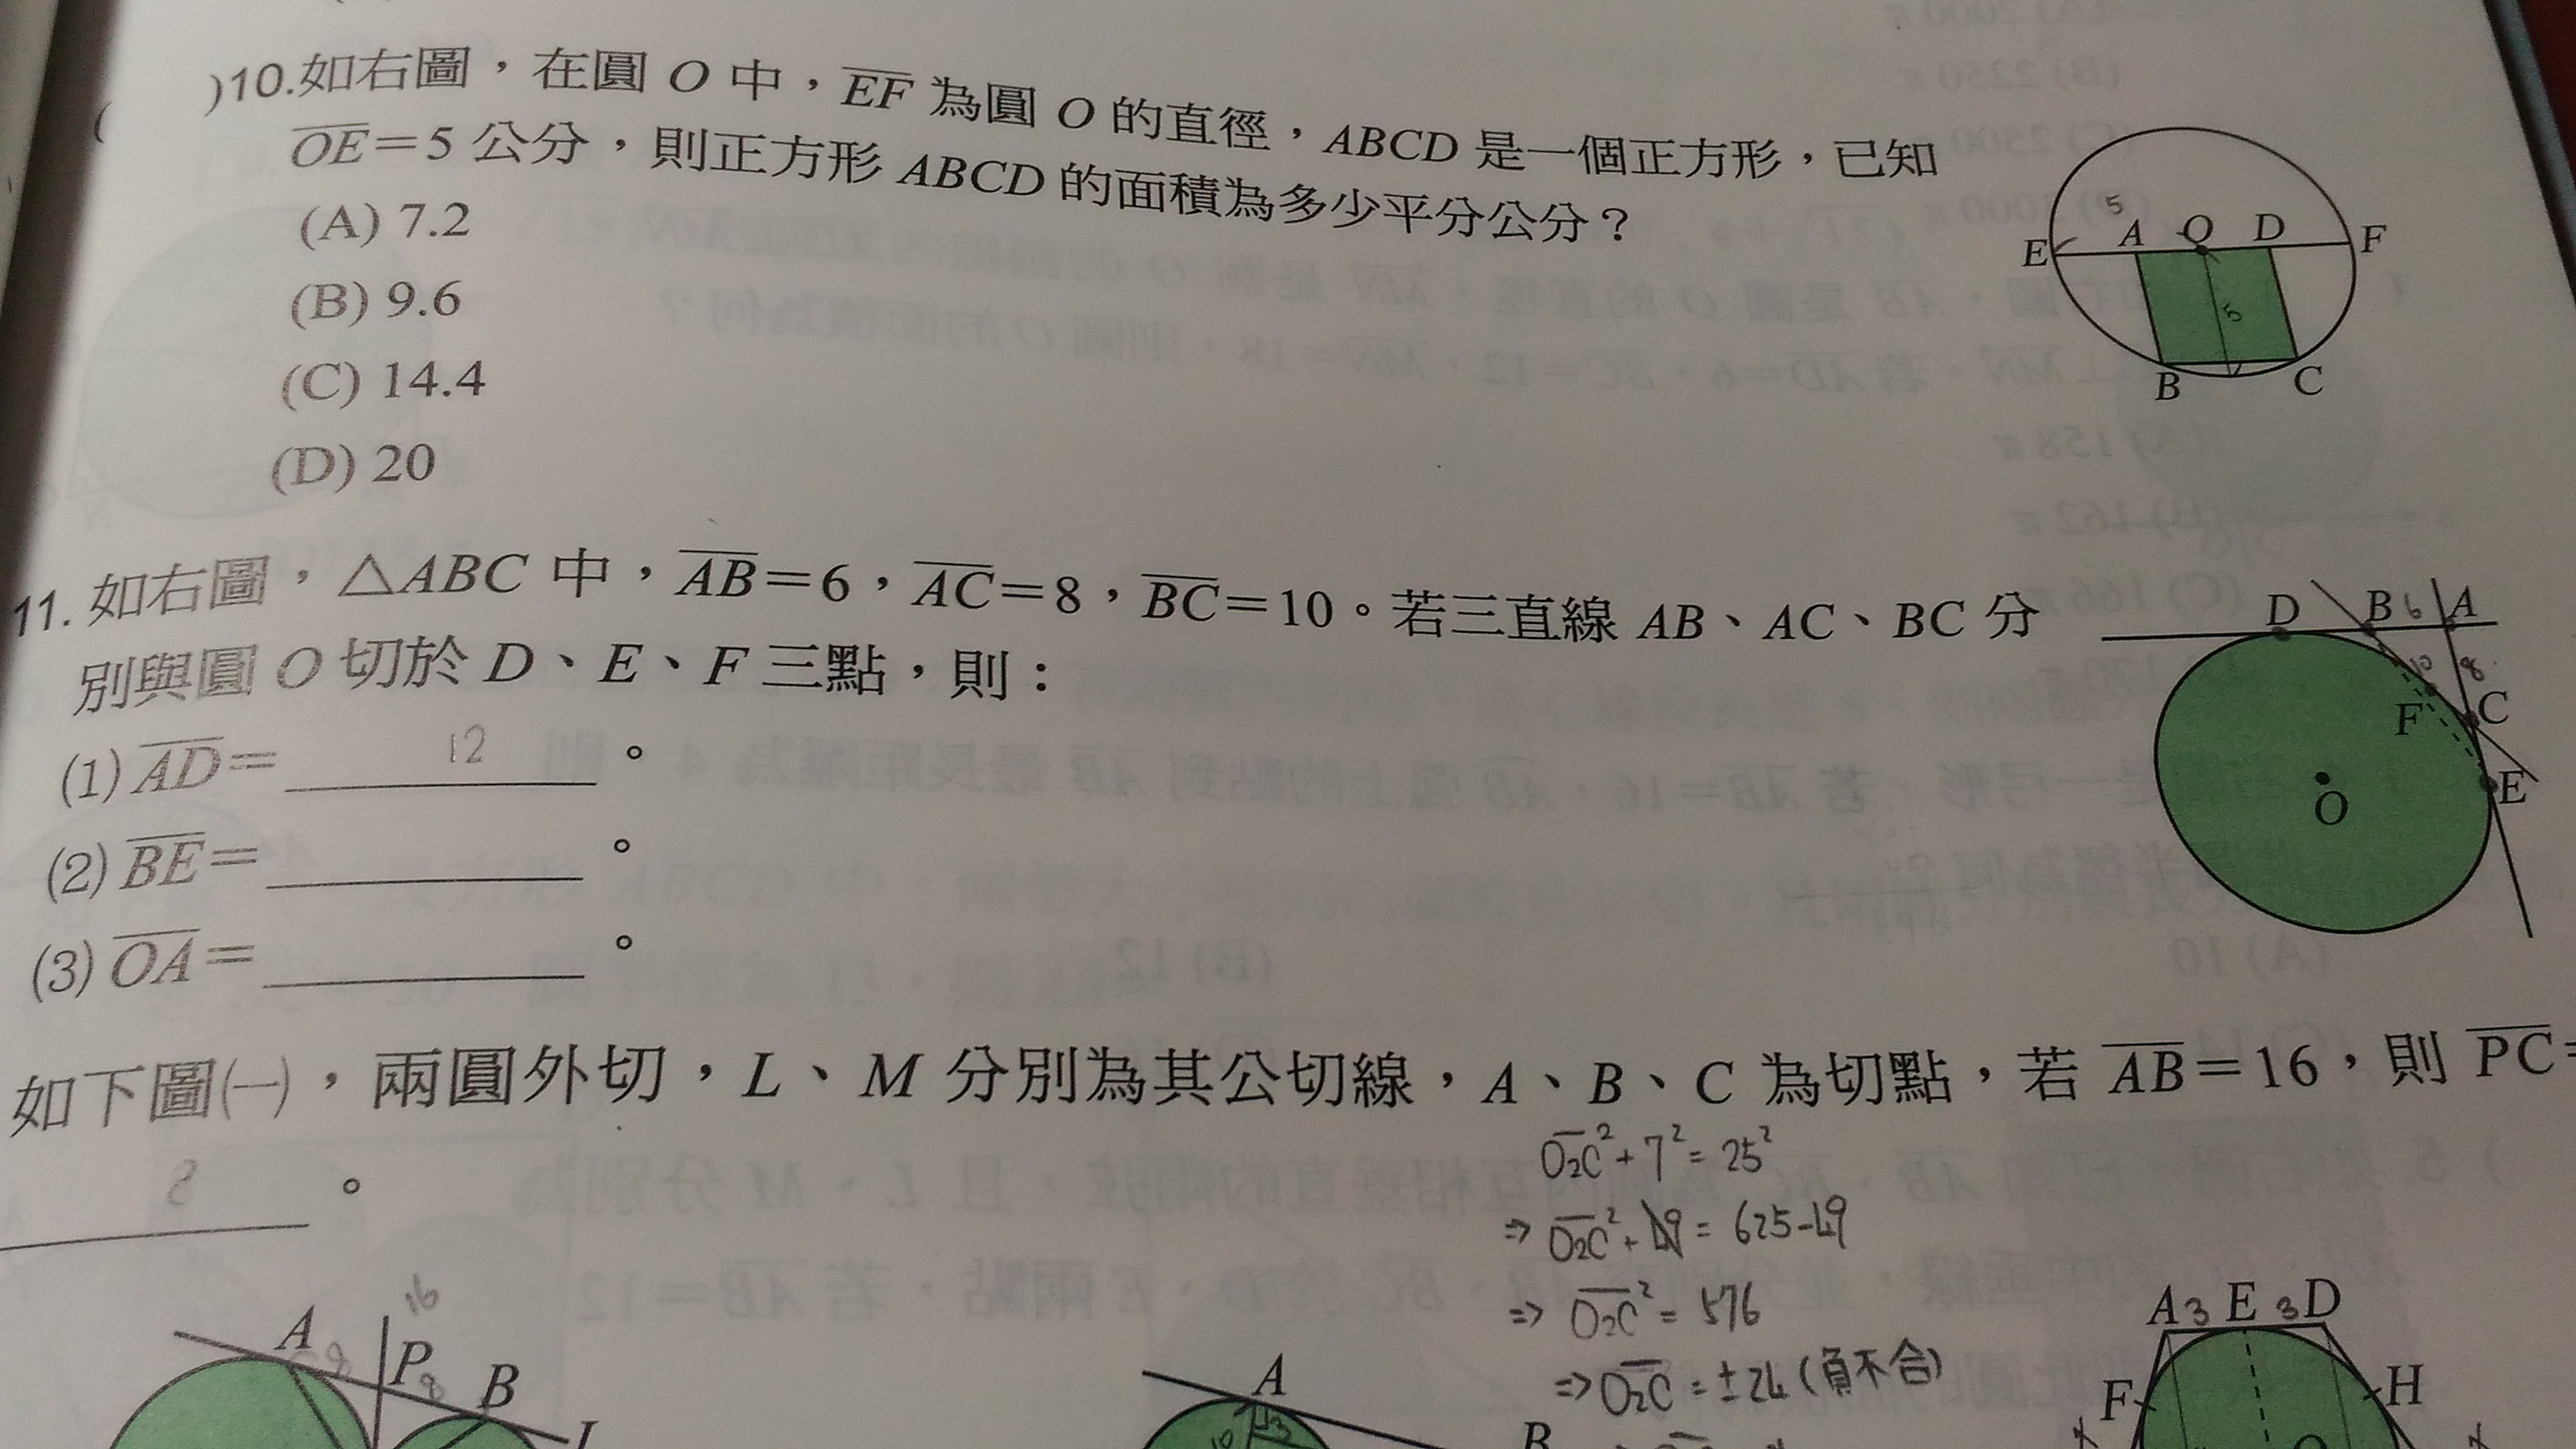 ( )10.如右圖，在圓 O 中，EF 為圓 O 的直徑，ABCD 是一個正方形，已知
OE=5 公分，則正方形 ABCD 的面積為多少平分公分？
(A) 7.2
(B) 9.6
(C) 14.4
(D) 20
5
E A O D F
5
B C
11. 如右圖，△ABC 中，AB=6，AC=8，BC=10。若三直線 AB、AC、BC 分
別與圓 O 切於 D、E、F 三點，則：
(1) AD= 12 。
(2) BE= 。
(3) OA= 。
D B 6 A
10 8
F C
O E
如下圖(一)，兩圓外切，L、M 分別為其公切線，A、B、C 為切點，若 AB=16，則 PC=
8 。
O₂C²+7²=25²
⇒ O₂C²+49=625-49
⇒ O₂C²=576
⇒ O₂C=±24(負不合)
16
A 8 P 8 B
A
B
A 3 E 3 D
F H